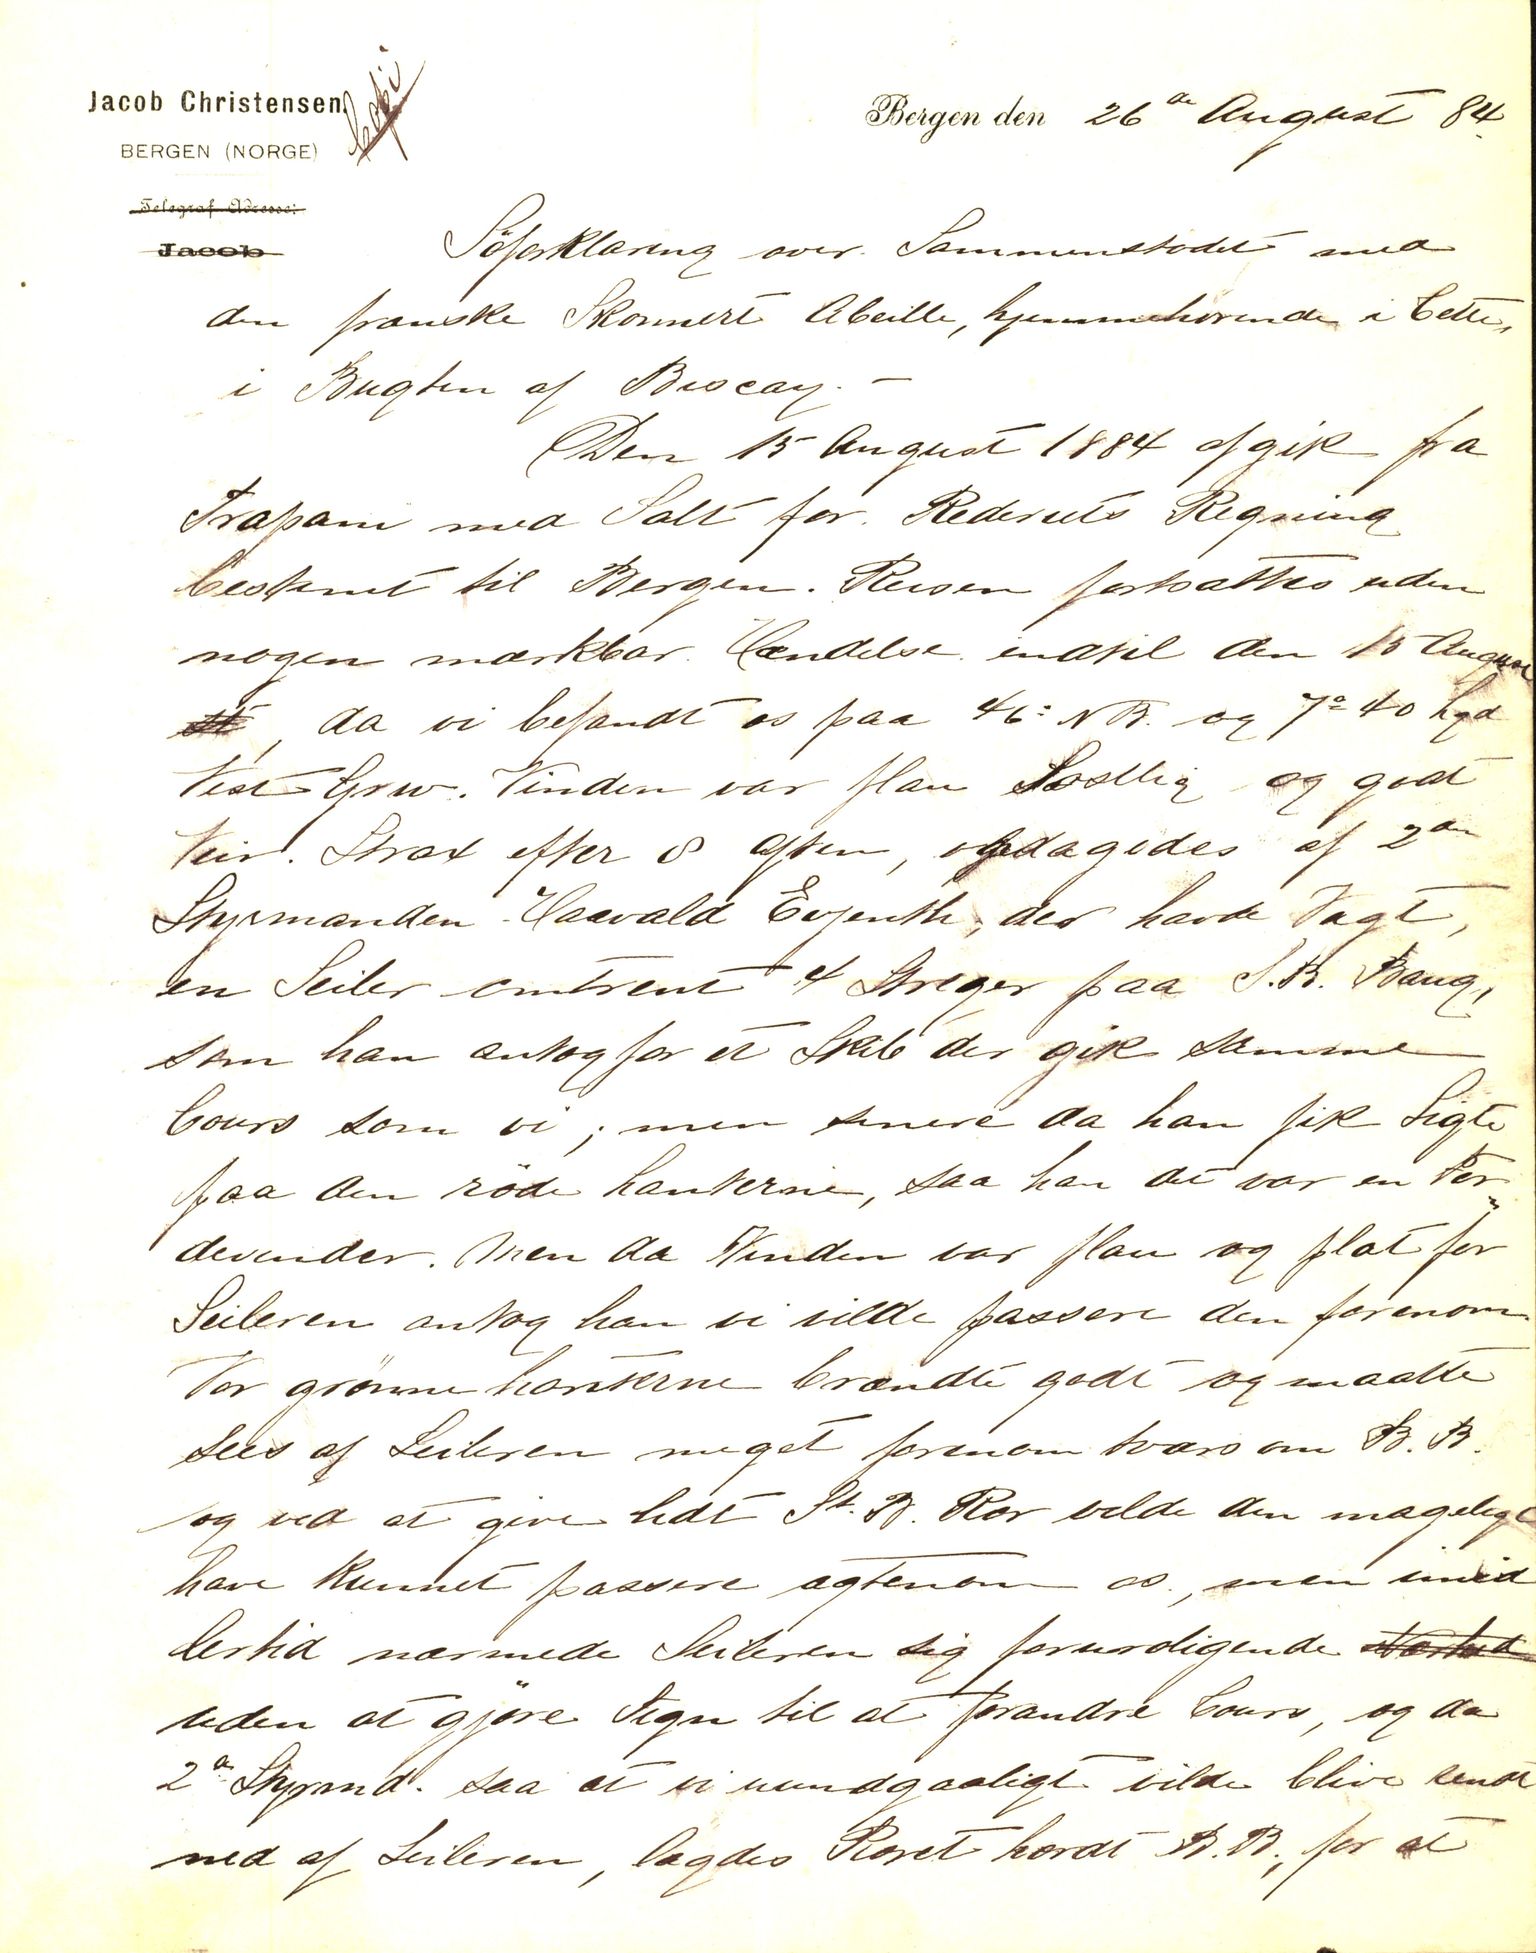 Jacob Christensen.
Copi
BERGEN (NORGE)
Telegraf Adresse:
Jacob
Bergen den 26de August 84.
Söforklaring over Sammenstödet med
den franske Skonnert Abeille, hjemmehörende i Cette,
i Bugten af Biscay. –
Den 15 August 1884 afgik fra
Trapani med Salt for Rederiets Regning
bestemt til Bergen. Reisen fortsattes uden
nogen mærkbar Hændelse indtil den 15 August
, da vi befandt os paa 46° NB. og 7° 40 lgd
Vest Grw. Vinden var flau Sostlig og godt
Veir. Strax efter 8 Aften, opdagedes af 2den
Styrmanden Haavald Evjenth, der havde Vagt,
en Seiler omtrent 4 Streger paa S.B. Boug,
som han antog for et Skib der gik samme
Cours som vi; men senere da han fik Sigte
paa den röde Lanterne, saa han det var en For-
devinder. Men da Vinden var flau og flat for
Seileren antog han vi vilde passere den forenom.
Vor grönne Lanterne brændte godt og maatte
sees af Seileren meget forenom tværs om B.B.
og ved at give lidt St.B. Ror vilde den mageligt
have kunnet passere agtenom os, men imid
lertid nærmede Seileren sig foruroligende
uden at gjöre Tegn til at forandre Cours, og da
2den Styrmd. saa at vi uundgaaligt vilde blive rendt
ned af Seileren, lagdes Roret hardt B.B., for at